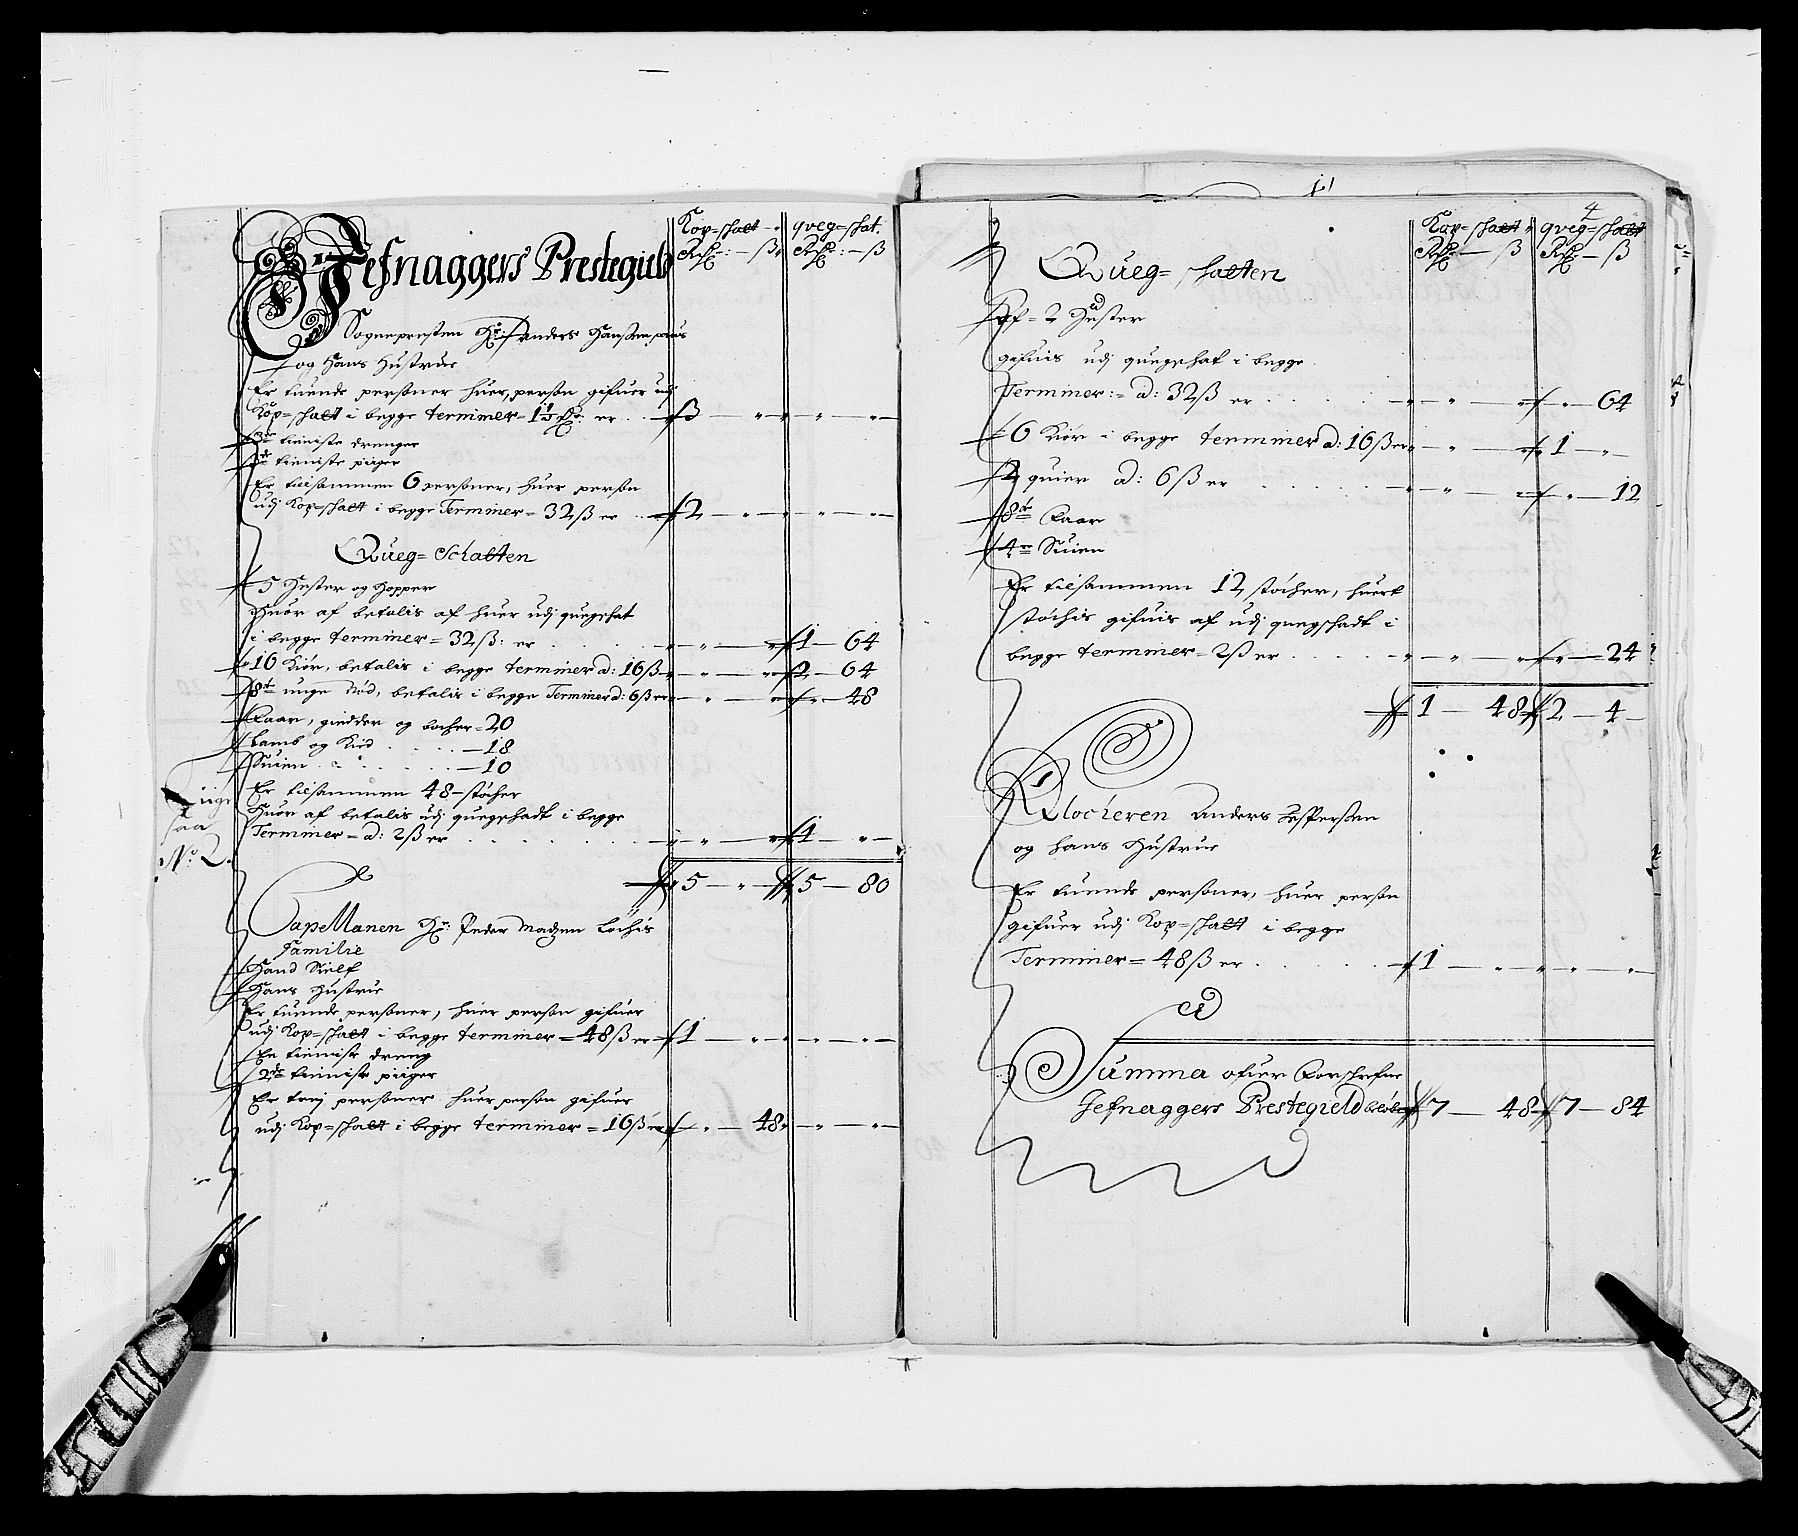 Kop=skatt - qveg=skat.
Rdr: — ß Rdr: — ß
Jefnaggers Prestegield
Sognepresten Hr: Anders Hanssen
og Hans Hustrue
Er tuende personer huer, person gifuer udj
Kop=skatt i begge terminer = 1½ Rdr: er . . 3 „ „ „
3de tieniste drenger
3de tieniste piiger
Er tilsammen 6 personer, huer person
udj Kop=skatt i begge Terminer = 32 ß er . . 2 — „ — „ — „
Qvueg= Schatten
5 Hester og Hopper
Huor af betalis af huer udj quegskat
i begge terminer = 32 ß: er . . . . „ — „ — 1 — 64
16 Kiør, betalis i begge terminer à: 16 ß — „ — 2 — 64
8te unge Nød, betalis i begge Terminer à: 6 ß er „ — „ — 48
Faar, gieder og bocher = 20
Lamb og Kied . . . . — 18
Suien . . . . — 10
Er tilsammen 48 — støcher
Huor af betalis udj quegskadt i begge
Terminer = à: 2 ß er . . . . „ — „ — 1 „ —
Liige
saa
No: 2.
5 — „ — 5 — 80
Capellanen Hr: Peder Madzen Lochis
Familie
Hand Sielf
Hans Hustrue
Er tuende personer, huer person gifuer
udj Kop=skatt i begge terminer = 48 ß er 1 — „ — „ — „
En tieniste dreng
2de tieniste piiger
Er trej personer huer person gifuer
udj Kop=skatt i begge terminer = 16 ß er „ — 48 „ — „ — „
4
Kop=skatt qveg=skatt
Rdr: — ß Rdr: — ß
Qvueg= skatten
Af = 2 Hester
gifuis udj quegskat i begge
Terminer: = à: 32 ß er . . . . „ — „ — „ — 64
6 Kiør i begge terminer à: 16 ß er „ — „ — 1 — „
2 quier à: 6 ß er . . . . „ — „ — „ — 12
8te Faar
4re Suien
Er tilsammen 12 støcher, huert
støchis gifuis af udj quegskadt i
begge terminer = 2 ß er . . . . „ — „ — „ — 24
1 — 48 2 — 4 —
Klocheren Anders Jespersen
og hans Hustrue
Er tuende personer, huer person
gifuer udj Kop=skatt i begge
Terminer = 48 ß er . . . . 1 — „ — „ — „
Summa ofuer Forskrefne
Jefnaggers Prestegield beløber 7 — 48 7 — 84